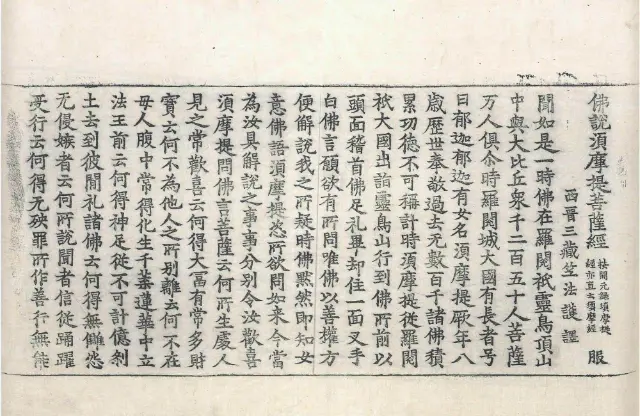 佛說須摩提菩薩經 按開元錄須摩提經亦直云須摩經 服
西晉三藏竺法護譯
聞如是一時佛在羅閱祇靈鳥頂山
中與大比丘衆千二百五十人菩薩
万人俱尒時羅閱城大國有長者号
曰郁迦郁迦有女名須摩提厥年八
歲歷世奉敬過去无數百千諸佛積
累功德不可稱計時須摩提從羅閱
祇大國出詣靈鳥山行到佛所前以
頭面稽首佛足礼畢却住一面叉手
白佛言願欲有所問唯佛以善權方
便解說我之所疑時佛黙然即知女
意佛語須摩提恣所欲問如來今當
為汝具解說之事事分別令汝歡喜
須摩提問佛言菩薩云何所生處人
見之常歡喜云何得大冨有常多財
寶云何不為他人之所別離云何不在
母人腹中常得化生千葉蓮華中立
法王前云何得神足從不可計億刹
土去到彼間礼諸佛云何得無讎怨
无侵嫉者云何所說聞者信從踊躍
受行云何得无殃罪所作善行無能